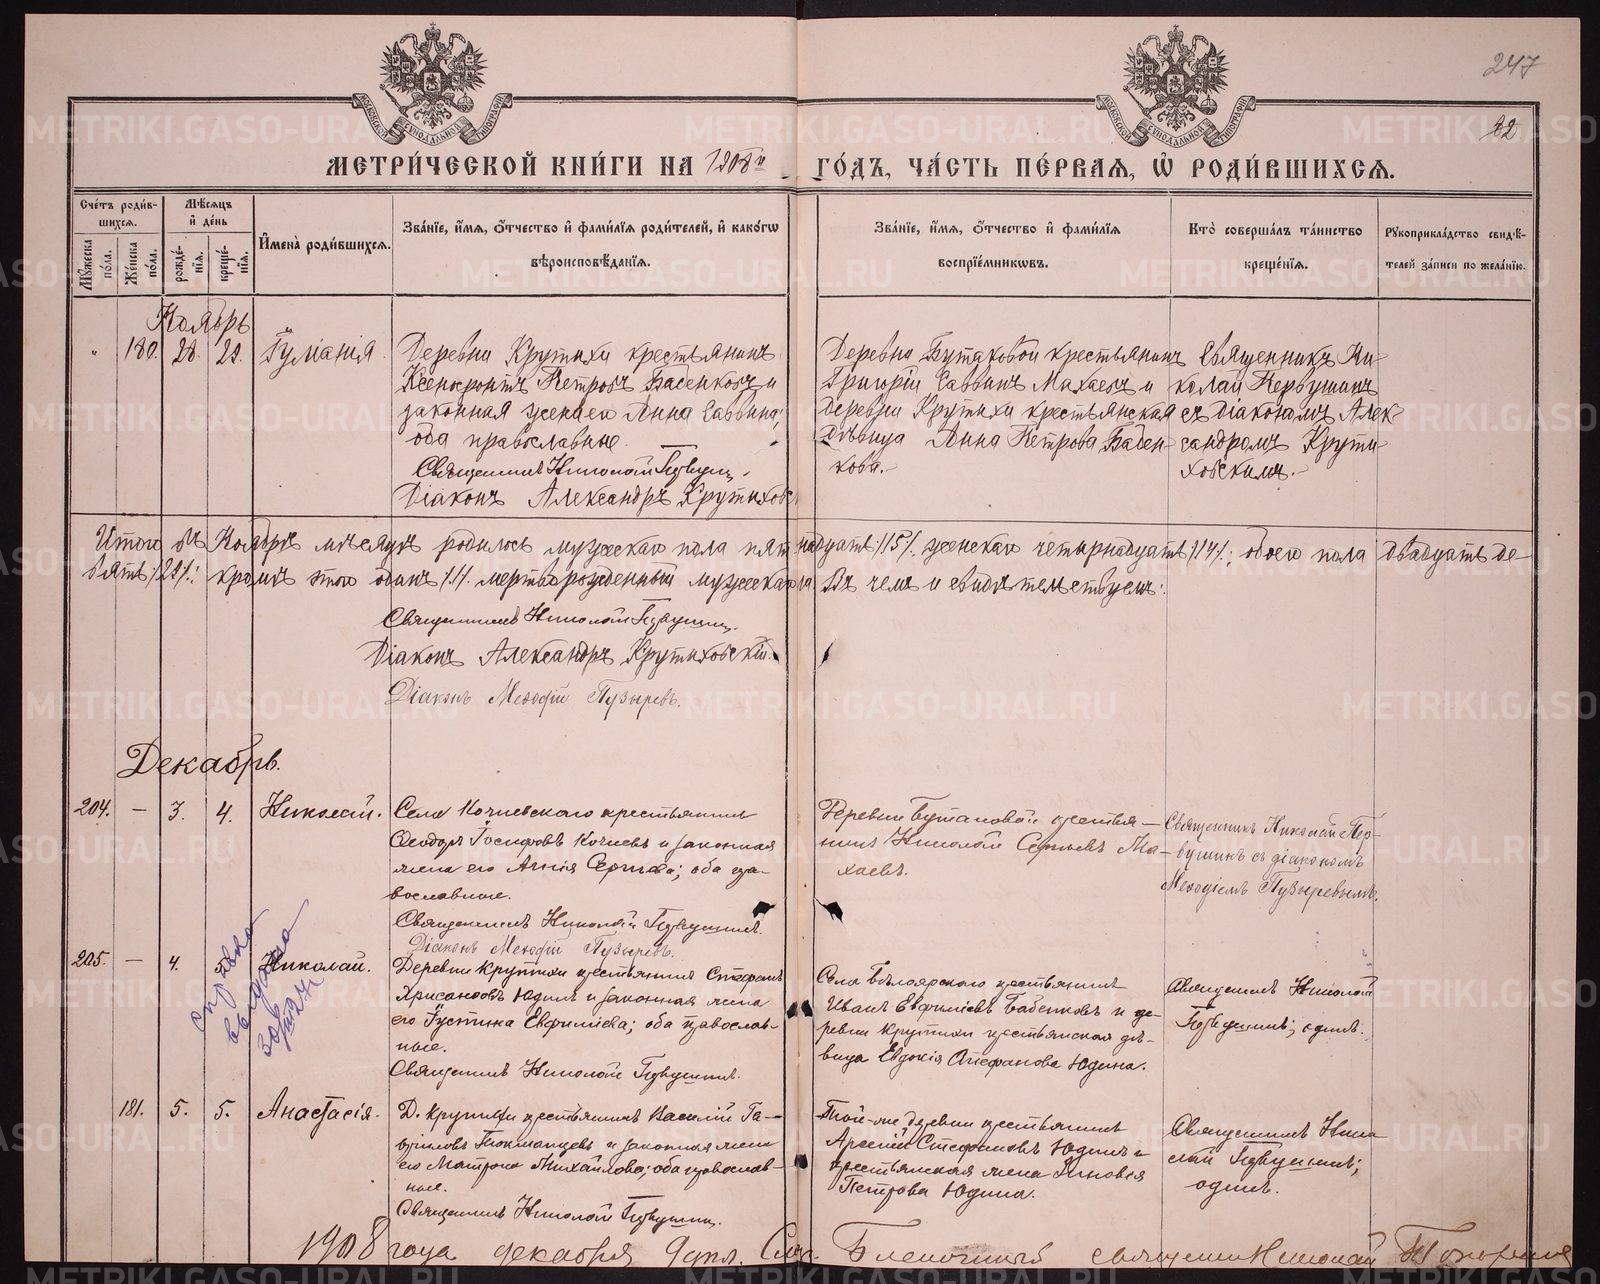 247
22
МЕТРИ́ЧЕСКОЙ КНИ́ГИ НА 1908й ГО́ДЪ, ЧА́СТЬ ПЕ́РВАЯ, Ѡ҆ РОДИ́ВШИХСЯ.
Сче́тъ роди́в-
шихся.
Му́жеска по́ла.
Же́нска по́ла.
Мѣ́сяцъ и҆ де́нь
рожде́-нїя.
креще́-нїя.
И҆мена̀ роди́вшихся.
Зва́нїе, и҆́мя, ѻ҆́тчество и҆ фами́лїя роди́телей, и҆ како́гѡ
вѣроисповѣ́данїя.
Зва́нїе, и҆́мя, ѻ҆́тчество и҆ фами́лїя
воспрїе́мникѡвъ.
Кто̀ соверша́лъ та́инство
креще́нїя.
Рукоприкла́дство свидѣ́-
телей за́писи по жела́нїю.
Ноябрь
" 180. 28. 29. Іуліанія.
Деревни Крутихи крестьянинъ
Ксенофонтъ Петровъ Бабенковъ и
законная жена его Анна Саввина;
оба православные.
Священникъ Николай Первушинъ.
Діаконъ Александръ Крутиховскій
Деревни Бутаковой крестьянинъ
Григорій Саввинъ Махаевъ и
деревни Крутихи крестьянская
девица Анна Петрова Бабен-
кова.
Священникъ Ни-
колай Первушинъ
съ діакономъ Алек-
сандромъ Крути-
ховскимъ.
Итого въ Ноябрѣ мѣсяцѣ родилось мужескаго пола пятнадцать /15/. женскаго четырнадцать /14/.; обоего пола двадцать де-
вять /29/.: кромѣ этого одинъ /1/. мертворожденный мужескаго. Въ чемъ и свидѣтельствуемъ:
Священникъ Николай Первушинъ.
Діаконъ Александръ Крутиховскій
Діаконъ Меѳодій Пузыревъ.
Декабрь.
204. — 3. 4. Николай.
Села Кочневскаго крестьянинъ
Ѳеодоръ Іосифовъ Кочневъ и законная
жена его Агнія Сергіева; оба пра-
вославные.
Священникъ Николай Первушинъ.
Діаконъ Меѳодій Пузыревъ.
Деревни Бутаковой крестья-
нинъ Николай Сергіевъ Ма-
хаевъ.
Священникъ Николай Пер-
вушинъ съ діакономъ
Меѳодіемъ Пузыревымъ.
205. — 4. Николай.
справка
выдана
Деревни Крутихи крестьянинъ Стефанъ
Хрисанфовъ Юдинъ и законная жена
его Іустина Евфиміева; оба православ-
ные.
Священникъ Николай Первушинъ.
Села Бѣлоярского крестьянинъ
Иванъ Евфиміевъ Бабенковъ и де-
ревни Крутихи крестьянская дѣ-
вица Евдокія Стефанова Юдина.
Священникъ Николай
Первушинъ; одинъ.
181. 5. 5. Анастасія.
Д. Крутихи крестьянинъ Василій Га-
вріиловъ Токманцевъ и законная жена
его Матрона Михайлова; оба православ-
ные.
Священникъ Николай Первушинъ.
Той-же деревни крестьянинъ
Арсеній Стефановъ Юдинъ и
крестьянская жена Зиновія
Петрова Юдина.
Священникъ Нико-
лай Первушинъ;
одинъ.
1908 года декабря 9 дня. священникъ Николай